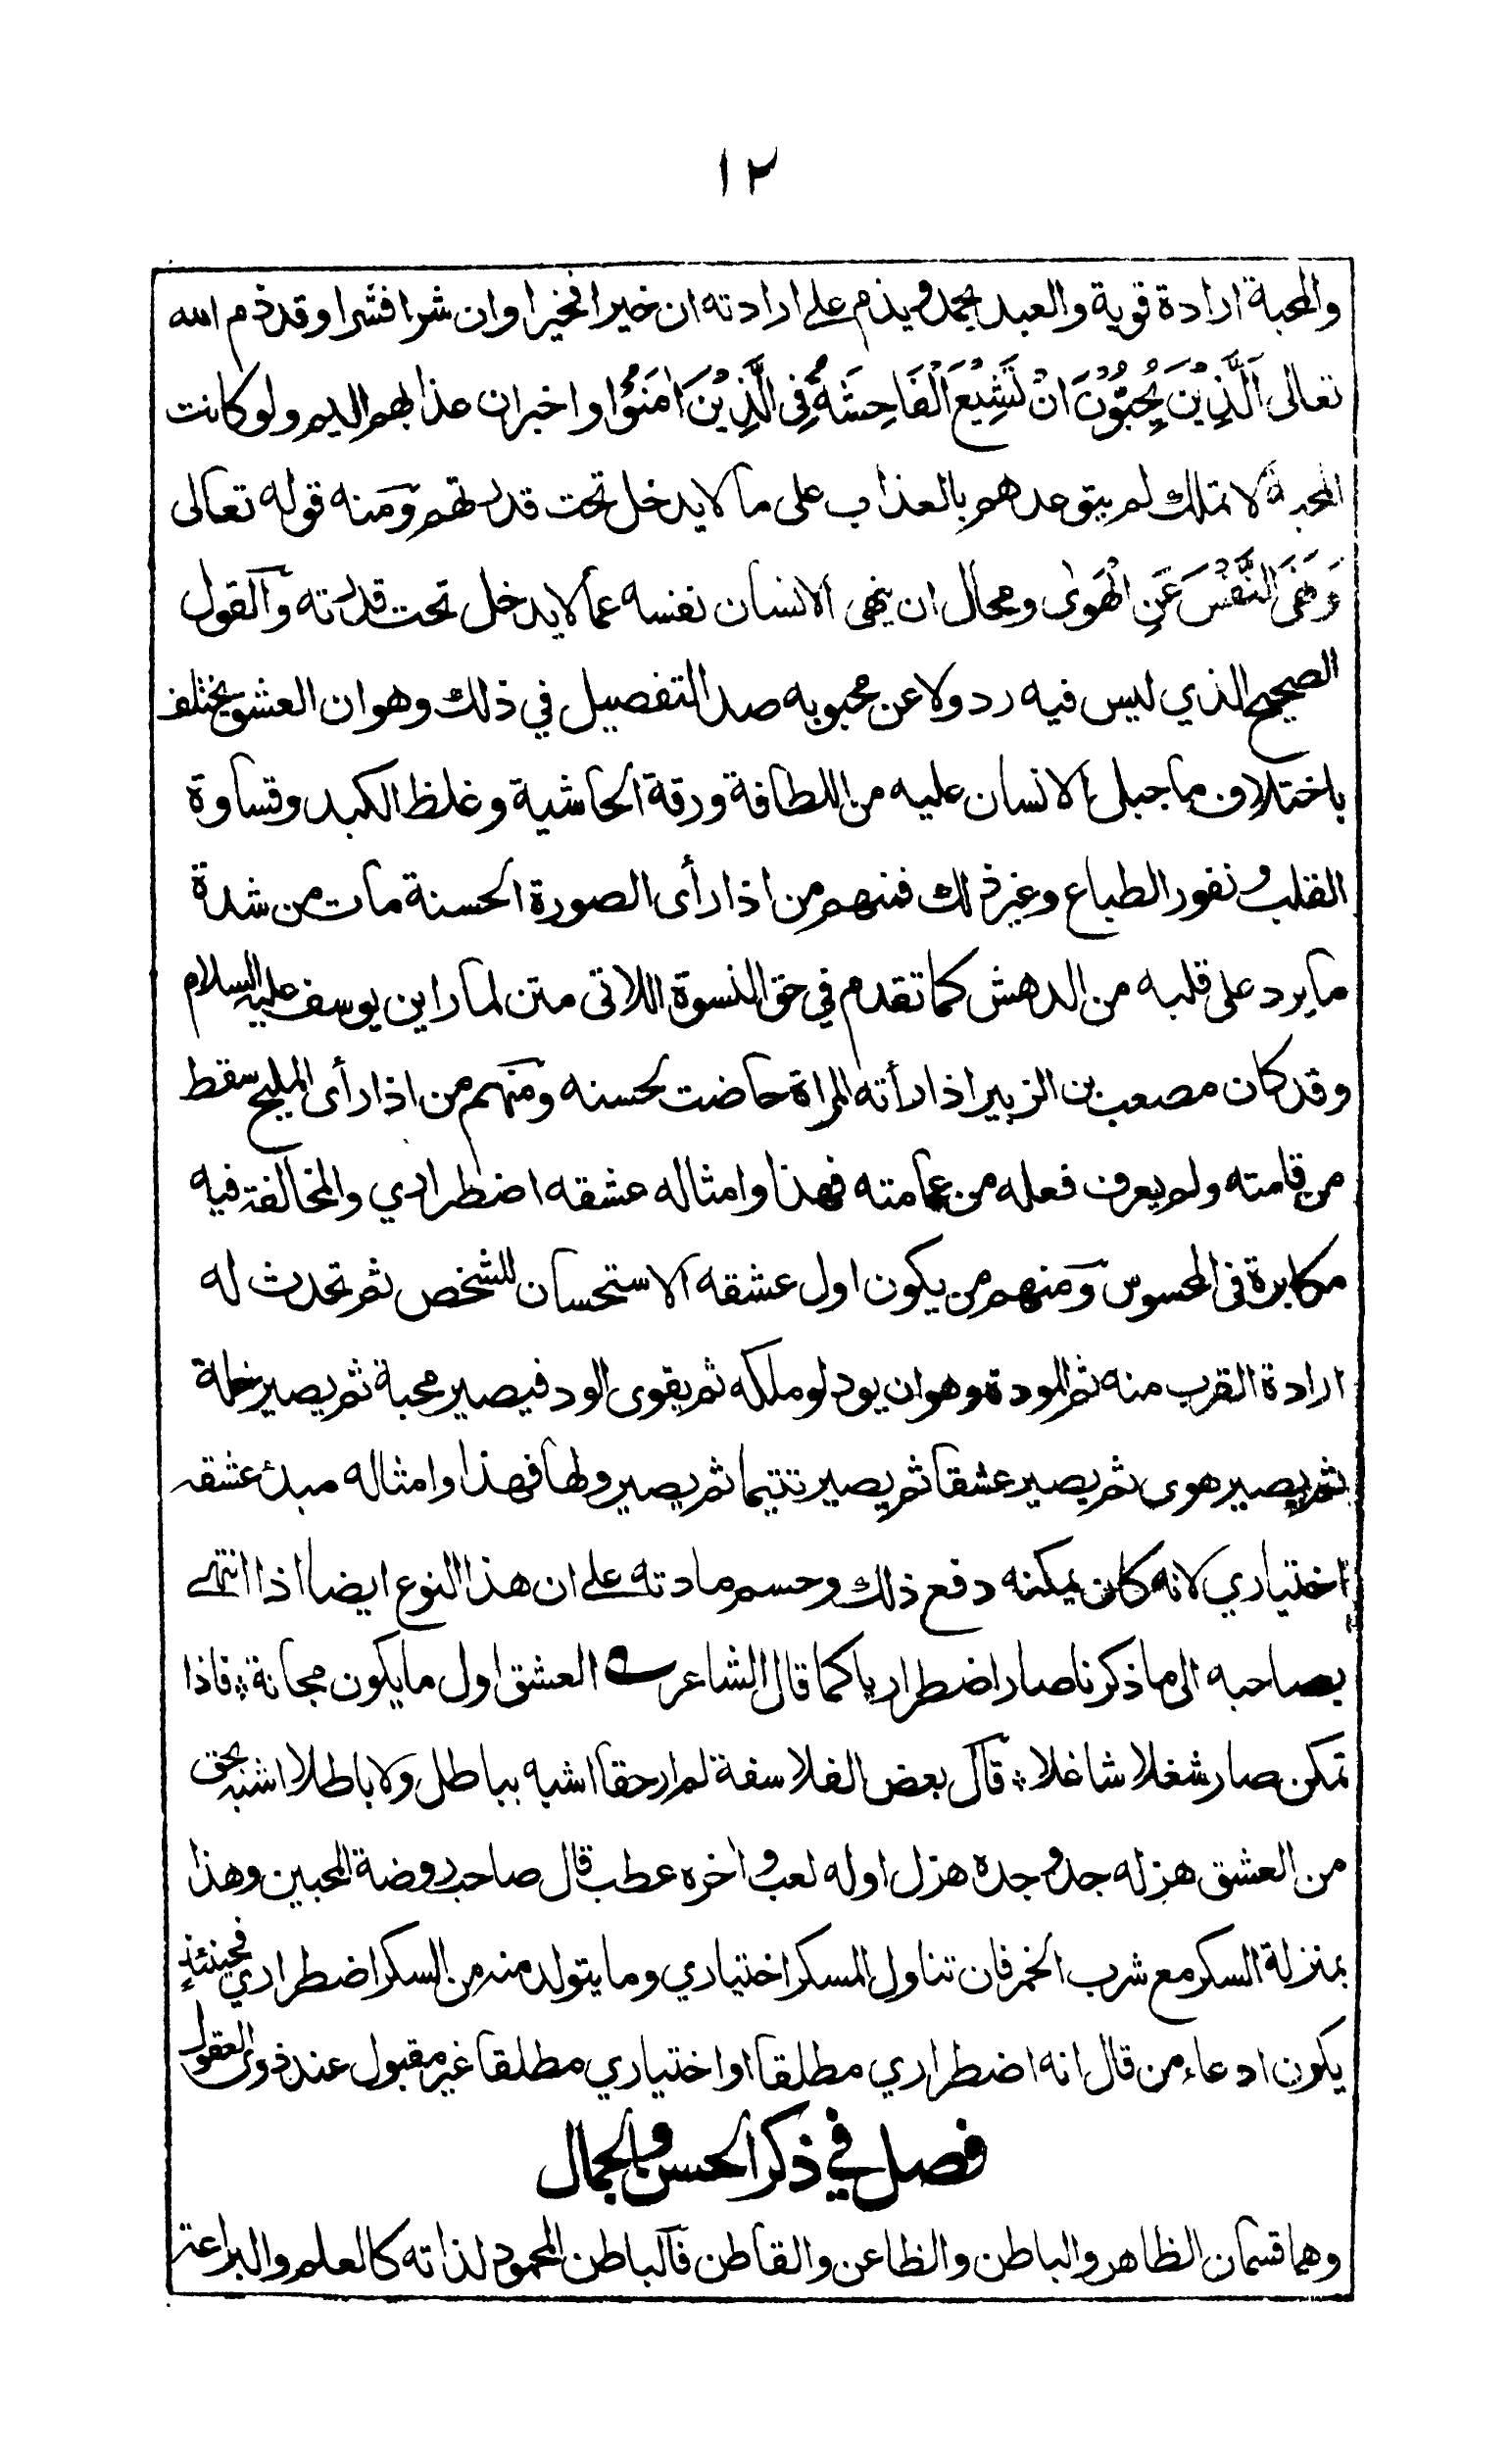 ١٢
والمحبة ارادة قوية والعبد يحمد ويذم على ارادته ان خيرا فخيرا وان شرا فشرا وقد ذم الله
تعالى اَلَّذِيْنَ يُحِبُّوْنَ اَنْ تَشِيْعَ الْفَاحِشَةُ فِى الَّذِيْنَ اٰمَنُوْا واخبران عذابهم اليم ولو كانت
المحبة لا تملك لم يتوعدهم بالعذاب على ما لا يدخل تحت قدرتهم ومنه قوله تعالى
وَنَهَى النَّفْسَ عَنِ الْهَوٰى ومحال ان ينهى الانسان نفسه عما لا يدخل تحت قدرته والقول
الصحيح الذي ليس فيه رد ولا عن محبوبه صد التفصيل في ذلك وهو ان العشق يختلف
باختلاف ما جبل الانسان عليه من اللطافة ورقة الحاشية وغلظ الكبد وقساوة
القلب ونفور الطباع وغير ذلك فمنهم من اذا رأى الصورة الحسنة مات من شدة
ما يرد على قلبه من الدهش كما تقدم في حق النسوة اللاتى متن لما راين يوسف عليه السلام
وقد كان مصعب بن الزبير اذا رأته المراة حاضت لحسنه ومنهم من اذا رأى المليح سقط
من قامته ولم يعرف فعله من عمامته فهذا وامثاله عشقه اضطراري والمخالفة فيه
مكابرة فى المحسوس ومنهم من يكون اول عشقه الاستحسان للشخص ثم تحدث له
ارادة القرب منه ثم المودة وهو ان يود لو ملكه ثم يقوى الود فيصير محبة ثم يصير خلة
ثم يصير هوى ثم يصير عشقا ثم يصير تتيما ثم يصير ولها فهذا وامثاله مبدء عشقه
اختياري لانه كان يمكنه دفع ذلك وحسم مادته على ان هذا النوع ايضا اذا انتهى
بصاحبه الى ما ذكرنا صار اضطراريا كما قال الشاعر العشق اول ما يكون مجانة فاذا
تمكن صار شغلا شاغلا قال بعض الفلاسفة لم ار حقا اشبه بباطل ولا باطلا اشبه بحق
من العشق هزله جد وجده هزل اوله لعب واخره عطب قال صاحب روضة المحبين وهذا
بمنزلة السكر مع شرب الخمر فان تناول المسكر اختياري وما يتولد منه من السكر اضطراري فحينئذ
يكون ادعاء من قال انه اضطراري مطلقا او اختياري مطلقا غير مقبول عند ذوى العقول
فصل في ذكر الحسن والجمال
وهما قسمان الظاهر والباطن والظاعن والقاطن فالباطن المحمود لذاته كالعلم والبراعة